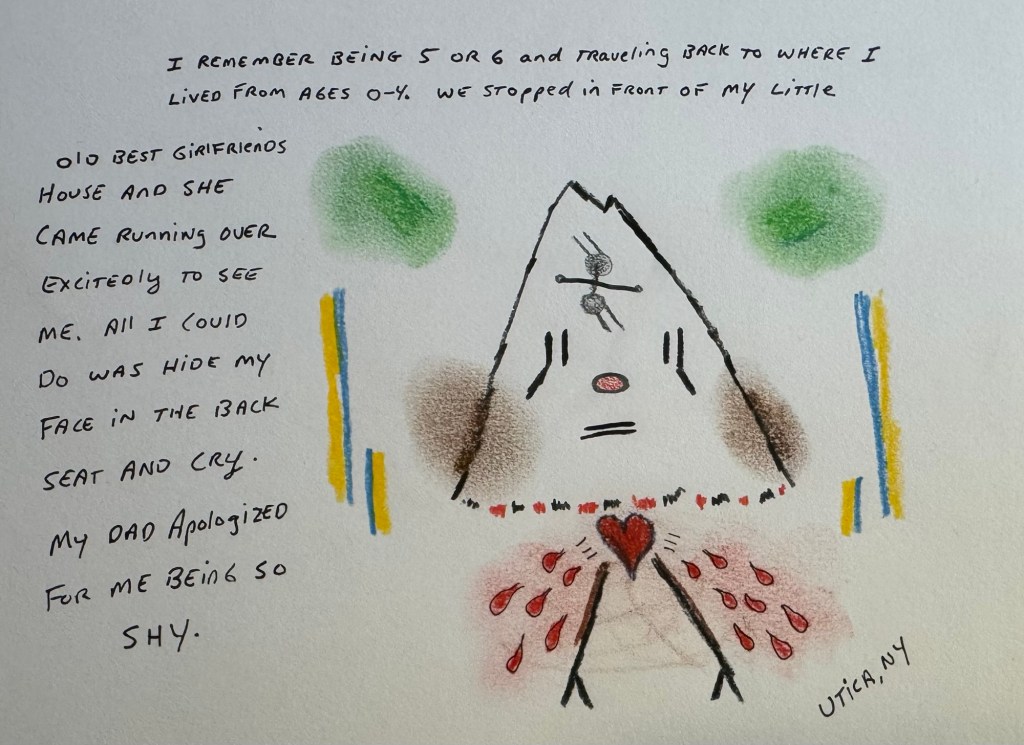 I REMEMBER BEING 5 OR 6 and TRAVELING BACK TO WHERE I
LIVED FROM AGES 0-4. WE STOPPED in FRONT OF MY LITTLE
OLD BEST GIRLFRIENDS
HOUSE AND SHE
CAME RUNNING OVER
EXCITEDLY TO SEE
ME. All I COULD
DO WAS HIDE MY
FACE IN THE BACK
SEAT AND CRY.
MY DAD APOLOGIZED
FOR ME BEING SO
SHY.
UTICA, NY